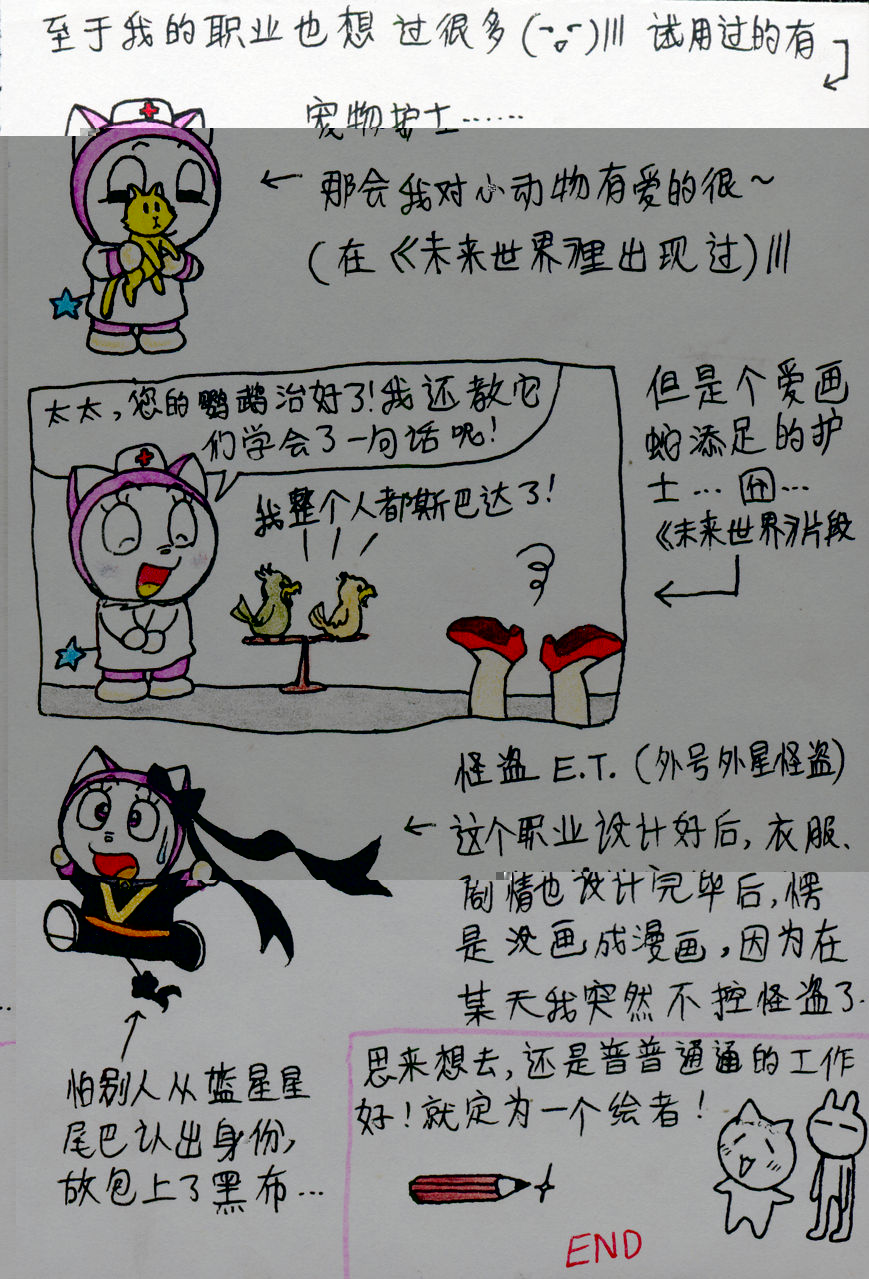 至于我的职业也想过很多(-。-)||| 试用过的有
宠物护士……
← 那会我对小动物有爱的很~
(在《未来世界》裡出现过)|||
太太,您的鹦鹉治好了!我还教它
们学会了一句话呢!
我整个人都斯巴达了!
但是个爱画
蛇添足的护
士…囧…
《未来世界》片段
怪盗 E.T. (外号外星怪盗)
← 这个职业设计好后,衣服、
剧情也设计完毕后,愣
是没画成漫画,因为在
某天我突然不控怪盗了.
怕别人从蓝星星
尾巴认出身份,
故包上了黑布…
思来想去,还是普普通通的工作
好!就定为一个绘者!
END